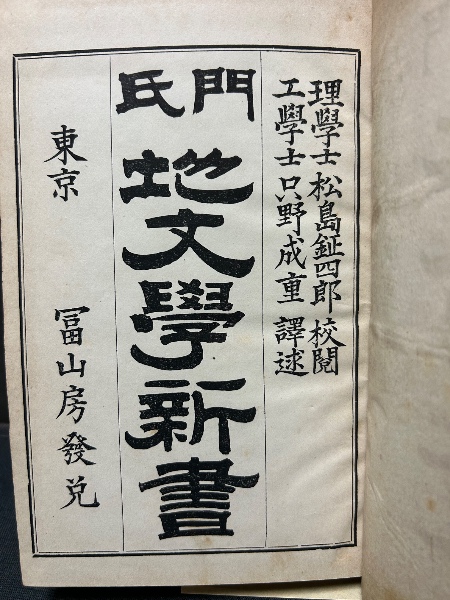 理學士 松島鉦四郎 校閲
工學士 只野成重 譯述
門氏
地文學新書
東京 冨山房發兌